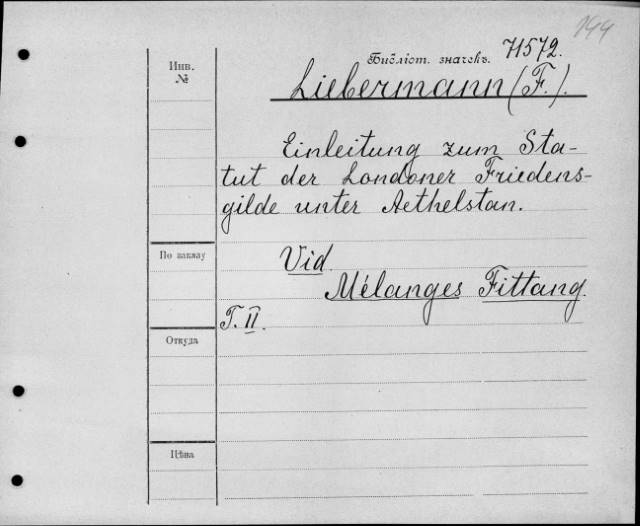 199
Библіот. значекъ. 71572.
Инв.
№
Liebermann (F.).
Einleitung zum Sta-
tut der Londoner Friedens-
gilde unter Aethelstan.
По заказу
Vid
Mélanges Fittang.
T. II.
Откуда
Цѣна